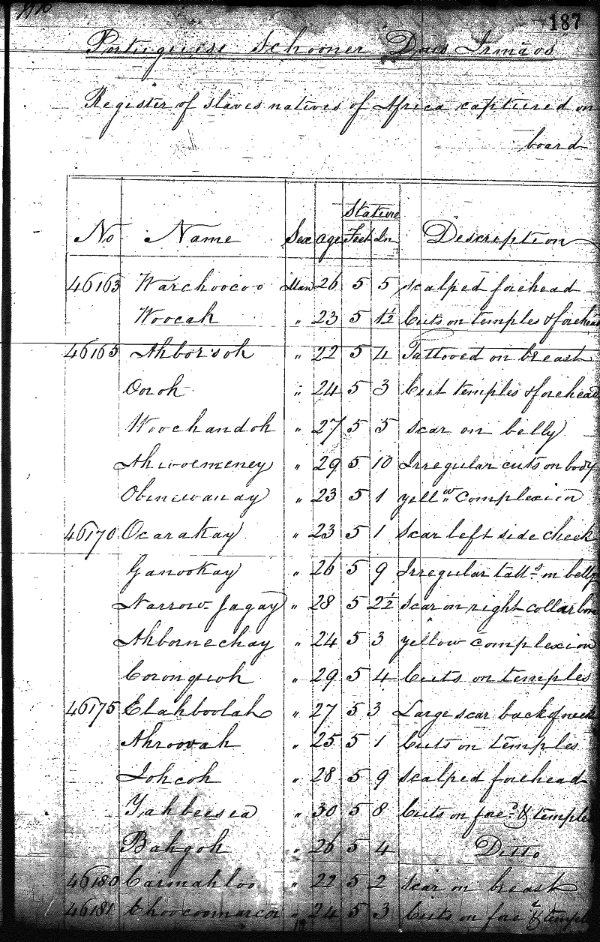 187
Portuguese Schooner Dous Irmãos
Register of slaves natives of Africa captured on
board
Stature
No Name Sex Age Feet In Description
46163 Warchoocoo Man 26 5 5 scalped forehead
Woocah " 23 5 1½ Cuts on temples & forehead
46165 Ahborsoh " 22 5 4 Tattooed on breast
Oroh " 24 5 3 Cut temples & forehead
Woochandoh " 27 5 5 scar on belly
Ahwoemeney " 29 5 10 Irregular cuts on body
Obinewanay " 23 5 1 yellow Complexion
46170 Ocarakay " 23 5 1 Scar left side cheek
Ganookay " 26 5 9 Irregular tatts on belly
Narrow-Jagay " 28 5 2½ Scar on right collar bone
Ahbornechay " 24 5 3 yellow complexion
Coronquoh " 29 5 4 Cuts on temples
46175 Elahboolah " 27 5 3 Large scar back of neck
Ahroovah " 25 5 1 Cuts on temples
Johcoh " 28 5 9 Scalped forehead
Yahbeesea " 30 5 8 Cuts on fore^d & temples
Bahgoh " 26 5 4 Ditto
46180 Carmahloo " 22 5 2 Scar on breast
46181 Choocoomarcor " 24 5 3 Cuts on fore^d & temple